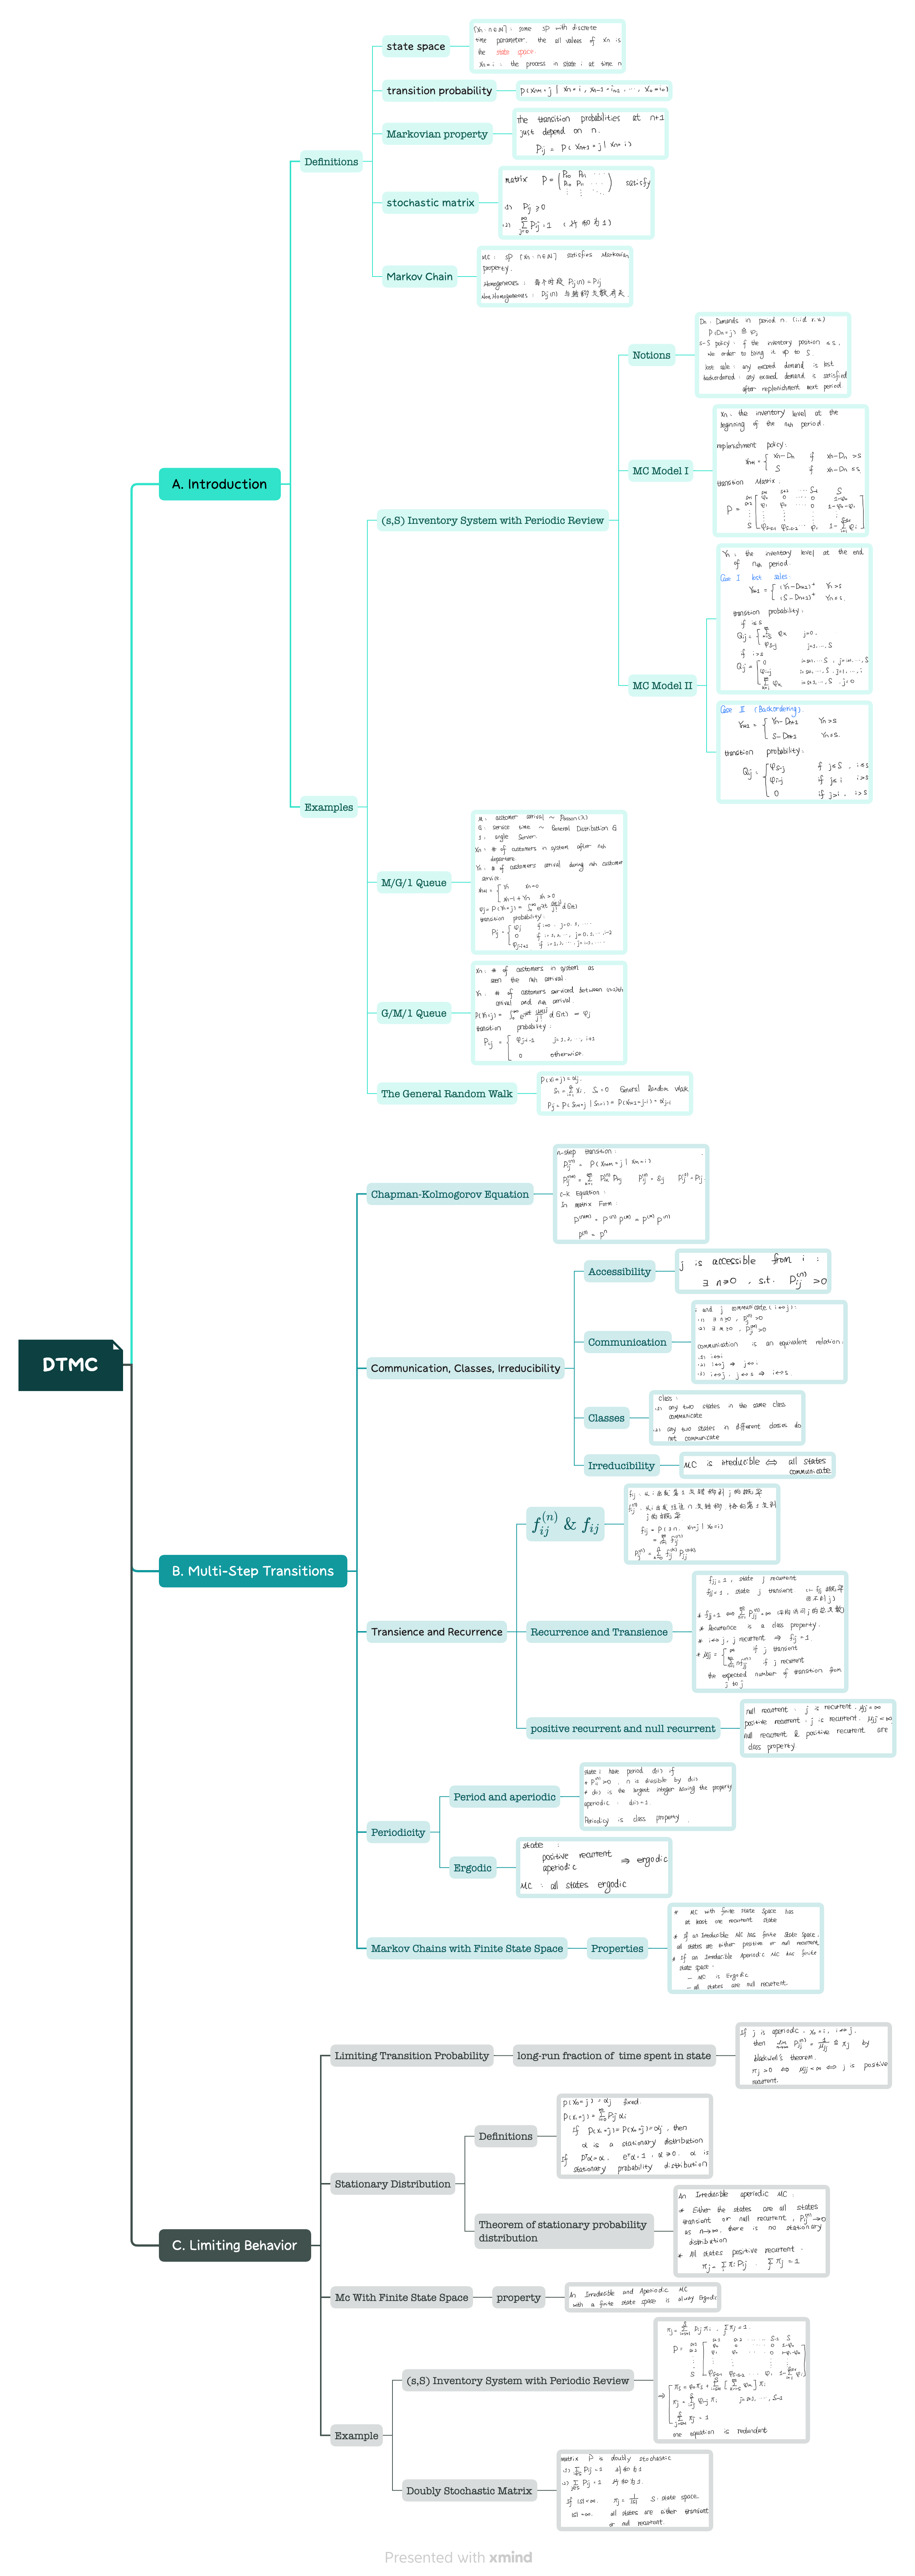 DTMC
A. Introduction
Definitions
state space
{Xn : n∈N} : some SP with discrete
time parameter. the all values of Xn is
the state space.
Xn = i : the process in state i at time n
transition probability
P(Xn+1 = j | Xn = i, Xn-1 = in-1, ..., X0 = i0)
Markovian property
the transition probabilities at n+1
just depend on n.
Pij = P(Xn+1 = j | Xn = i)
stochastic matrix
matrix P = satisfy
(1) Pij ≥ 0
(2) ∑ Pij = 1 (行和为1)
Markov Chain
MC : SP {Xn : n∈N} satisfies Markovian
property.
Homogeneous : 每个时段 Pij(n) = Pij
Non Homogeneous : Pij(n) 与转移次数有关.
Examples
(s,S) Inventory System with Periodic Review
Notions
Dn : Demands in period n. (i.i.d r.v.)
P(Dn = j) ≙ φj
s-S policy : if the inventory position ≤ s,
we order to bring it up to S.
lost sale : any exceed demand is lost
backordered : any exceed demand is satisfied
after replenishment next period
MC Model I
Xn : the inventory level at the
beginning of the nth period.
replenishment policy :
Xn+1 = { Xn-Dn if Xn-Dn > s
S if Xn-Dn ≤ s
transition Matrix :
MC Model II
Yn : the inventory level at the end
of nth period.
Case I lost sales
Yn+1 = { (Yn-Dn+1)+ Yn > s
(S-Dn+1)+ Yn ≤ s.
transition probability :
if i ≤ s
if i > s
Case II (Backordering).
Yn+1 = { Yn-Dn+1 Yn > s
S-Dn+1 Yn ≤ s.
transition probability :
Qij = { φS-j if j ≤ S, i ≤ s
φi-j if j ≤ i i > s
0 if j > i, i > s
M/G/1 Queue
M : customer arrival ~ Poisson(λ)
G : service time ~ General Distribution G
1 : single Server
Xn : # of customers in system after nth
departure.
Yn : # of customers arrival during nth customer
service.
transition probability :
G/M/1 Queue
Xn : # of customers in system as
seen the nth arrival.
Yn : # of customers serviced between
arrival and nth arrival.
transition probability :
0 otherwise.
The General Random Walk
P(Xi = j) = αj.
General Random Walk
Pij = P(Sn+1 = j | Sn = i) = P(Xn+1 = j-i) = αj-i
B. Multi-Step Transitions
Chapman-Kolmogorov Equation
n-step transition :
C-K Equation :
In Matrix Form :
P(n+m) = P(n) P(m) = P(m) P(n)
P(n) = Pn
Communication, Classes, Irreducibility
Accessibility
j is accessible from i :
∃ n ≥ 0, s.t. Pij(n) > 0
Communication
i and j communicate (i↔j) :
communication is an equivalent relation :
(1) i↔i
(2) i↔j ⇒ j↔i
(3) i↔j, j↔s ⇒ i↔s
Classes
class :
(1) any two states in the same class
communicate
(2) any two states in different classes do
not communicate
Irreducibility
MC is irreducible ⇔ all states
communicate
Transience and Recurrence
fij(n) & fij
Recurrence and Transience
fjj = 1, state j recurrent
* Recurrence is a class property.
* i↔j, j recurrent ⇒ fij = 1.
the expected number of transition from
j to j
positive recurrent and null recurrent
null recurrent : j is recurrent. μjj = ∞
positive recurrent : j is recurrent. μjj < ∞
null recurrent & positive recurrent are
class property.
Periodicity
Period and aperiodic
state i have period d(i) if
* d(i) is the largest integer having the property
aperiodic : d(i) = 1.
Periodicy is class property.
Ergodic
state :
positive recurrent
aperiodic ⇒ ergodic
MC : all states ergodic
Markov Chains with Finite State Space
Properties
* MC with finite State Space has
at least one recurrent state
* If an Irreducible MC has finite State Space,
all states are either positive or null recurrent
* If an Irreducible Aperiodic MC has finite
state space :
- MC is Ergodic
- all states are null recurrent.
C. Limiting Behavior
Limiting Transition Probability
long-run fraction of time spent in state
If j is aperiodic, X0 = i, i↔j.
by
blackwell's theorem.
πj > 0 ⇔ μjj < ∞ ⇔ j is positive
recurrent.
Stationary Distribution
Definitions
P(X0 = j) = αj fixed.
If P(X1 = j) = P(X0 = j) = αj, then
α is a stationary distribution
stationary probability distribution
Theorem of stationary probability
distribution
An Irreducible aperiodic MC :
* Either the states are all states
transient or null recurrent, Pij(n) → 0
as n→∞, there is no stationary
distribution
* All states positive recurrent.
πj = ∑ πi Pij. ∑ πj = 1
Mc With Finite State Space
property
An Irreducible and Aperiodic MC
with a finite state space is alway Ergodic
Example
(s,S) Inventory System with Periodic Review
one equation is redundant
Doubly Stochastic Matrix
matrix P is doubly stochastic
S: state space.
all states are either transient
or null recurrent.
Presented with xmind